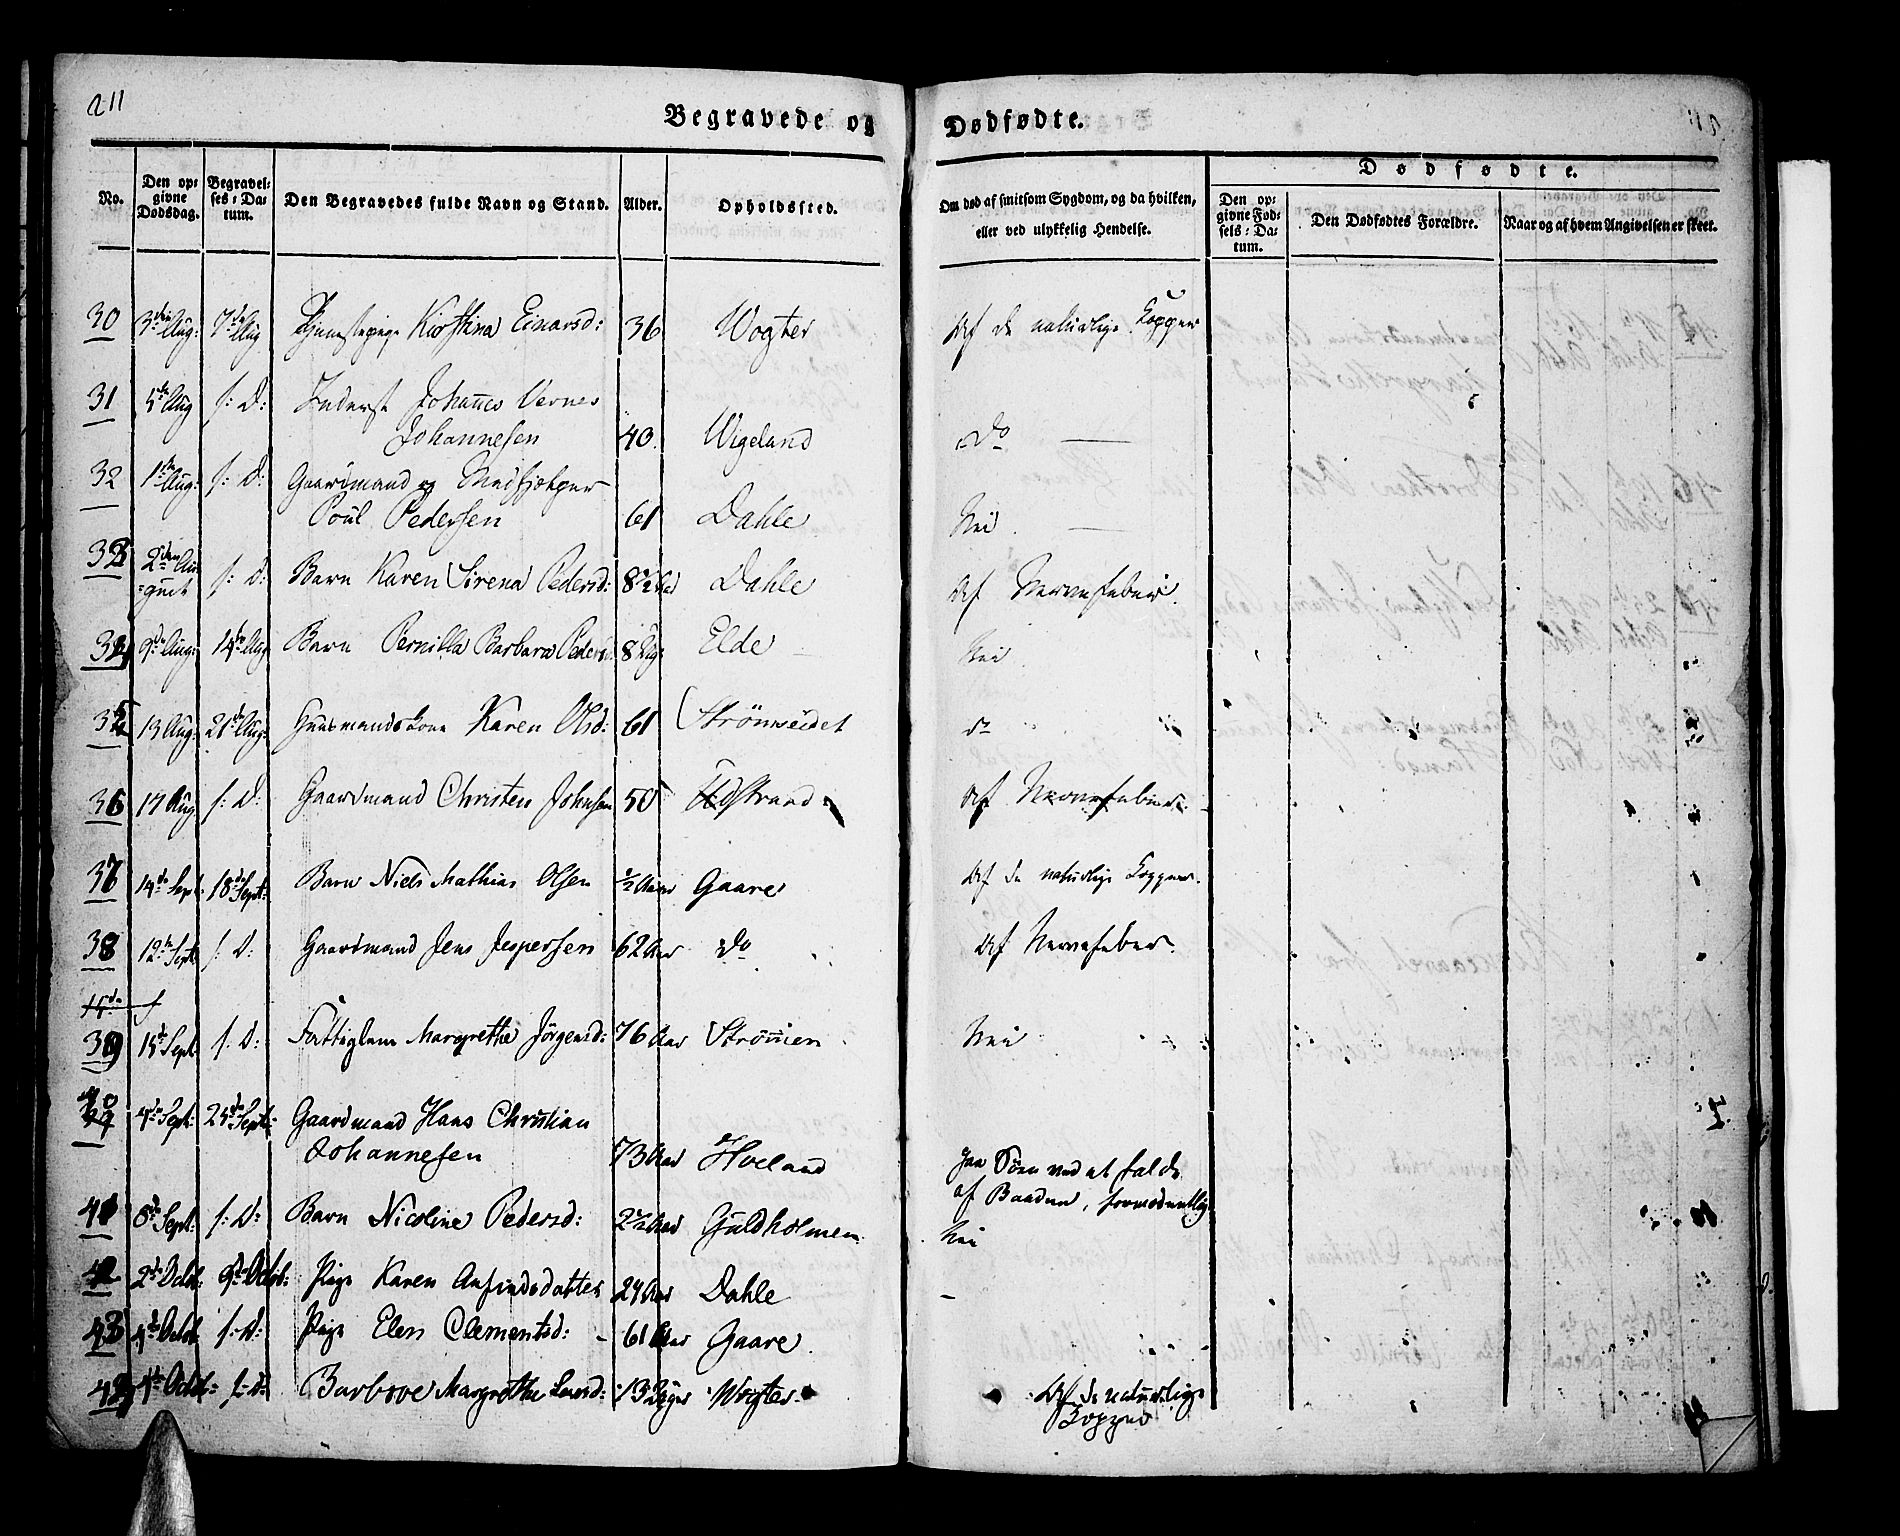 211
Begravede og Dødfødte.
No.
Den op=
givne
Dødsdag.
Begravel=
ses=Da=
tum.
Den Begravedes fulde Navn og Stand.
Alder.
Opholdssted.
Om død af smitsom Sygdom, og da hvilken,
eller ved ulykkelig Hendelse.
Dødfødte.
Den op=
givne Fød=
sels=Da=
tum.
Den Dødfødtes Forældre.
Naar og af hvem Angivelsen er skeet.
30 3den Aug: 7de Aug Kirstina Einarsd: 36 Wogter Af de naturlige Kopper
31 5te Aug s: D: Inderst Johannes Vernes
Johannesen 40. Wigeland Do
32 1ste Aug: s: D: Gaardmand og
Poul Pedersen 61 Dahle Nei
33 2den Au=
=gust s: D: Barn Karen Sirena Pedersd: 8½ Aar Dahle Af Nervefeber.
34 9de Aug: 14de Aug Barn Pernilla Barbara Pedersd: 8 Elde Nei
35 13 Aug: 21de Aug: Huusmandskone Karen Olsd: 61 Strömseidet do
36 17 Aug s: D: Gaardmand Christen Johnsen 50 Udstrand Af Nervefeber.
37 14de Sept. 18de Sept: Barn Niels Mathias Olsen ½ Aar Gaare Af de naturlige Kopper.
38 12te Sept s: D: Gaardmand Jens Jespersen 62 Aar Do Af Nervefeber.
39 15de Sept. s: D: Fattiglem Margrethe Jörgensd: 76 Aar Strömen Nei
40 4de Sept: 25de Sept: Gaardmand Hans Christian
Johannesen 73 Aar Hoeland Jaa ved at falde
af Baaden, formodentlig
41 8de Sept: s: D: Barn Nicoline Pedersd: 2½ Aar Guldholmen Nei
42 2de Octb: 9de Octb: Pige Karen Anfindsdatter 24 Aar Dahle –
43 4de Octb s: D: Pige Elen Clementsd: 61 Aar Gaare.
4de Octb: s: D: Barbroe Margrethe 13 Uger Wogter Af de naturlige
Kopper